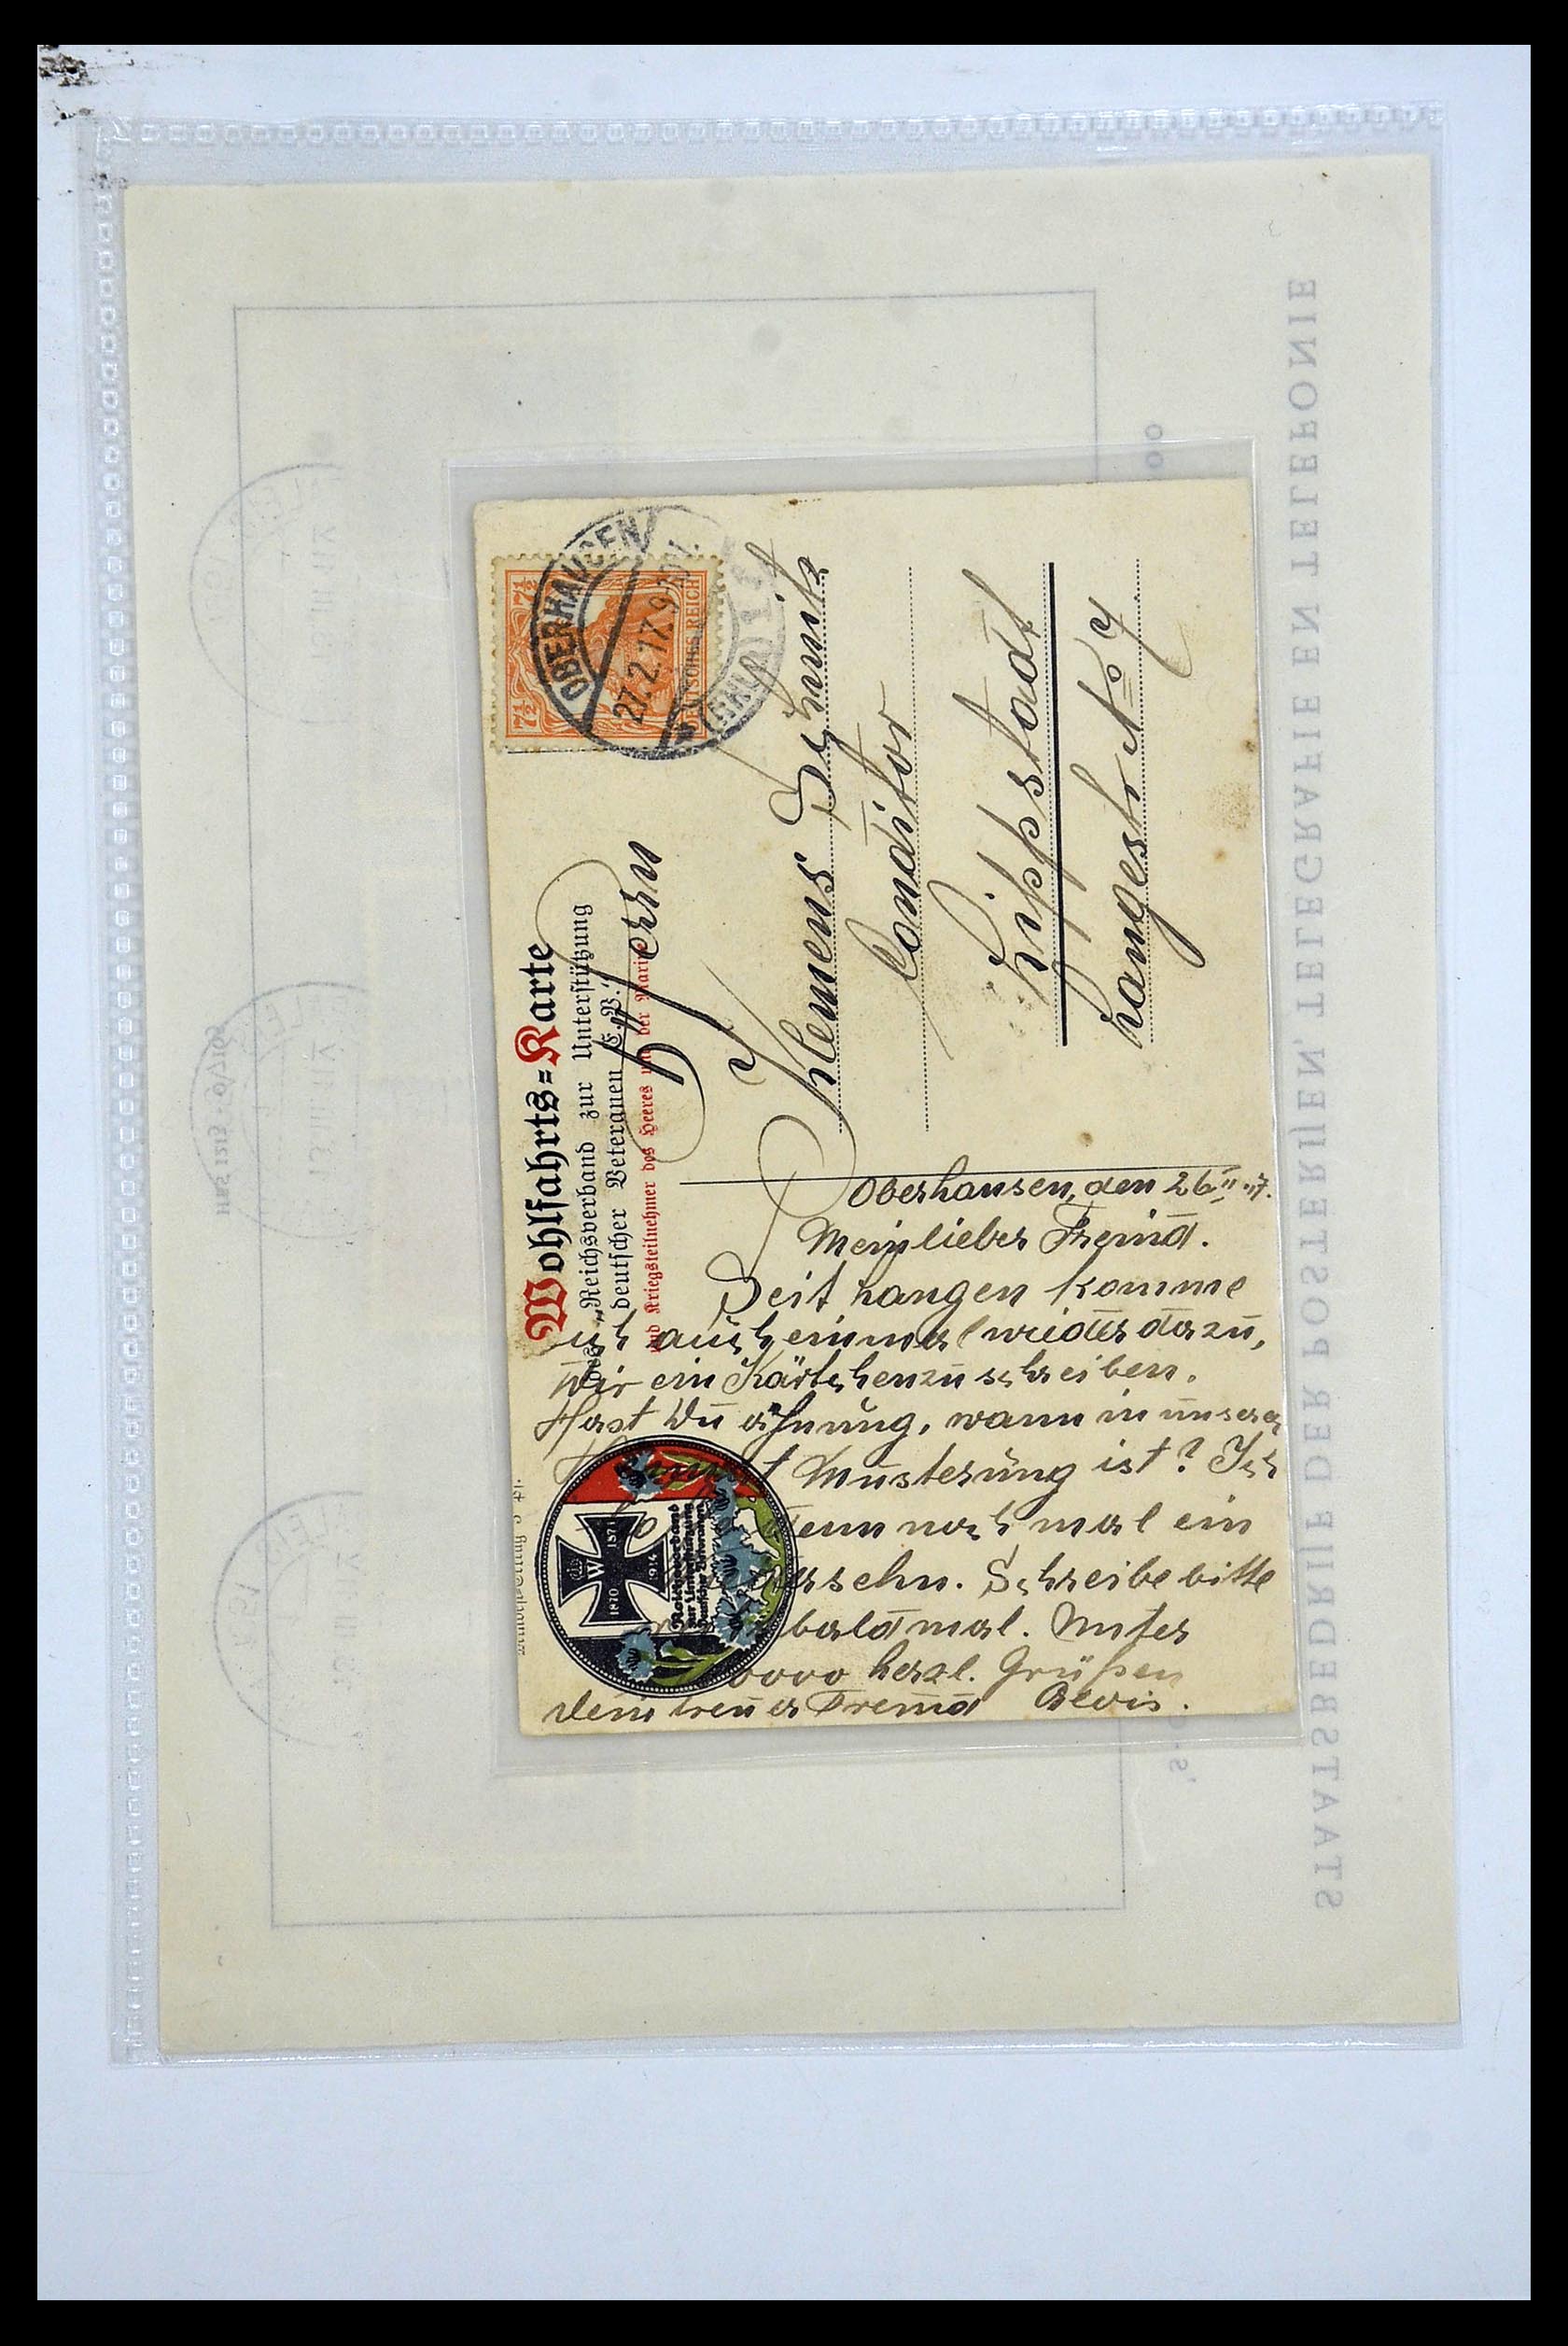 Wohlfahrts-Karte
des „Reichsverband zur Unterstützung
deutscher Veteranen E. V."
und Kriegsteilnehmer des Heeres und der Marine
7½ 7½
DEUTSCHES REICH
OBERHAUSEN
27.2.17. 9-10
(RHLD)
Herrn
Klemens Schmitz
Conditor
Lippstadt
Langestr No 7
Oberhausen, den 26 II 17.
Mein lieber Freund.
Seit Langen komme
ich auch einmal wieder dazu,
Dir ein Kärtchen zu schreiben.
Hast Du ahnung, wann in unserer
Heimat Musterung ist? Ich
denn noch mal ein
sehn. Schreibe bitte
bald mal. Unter
0000 herzl. Grüßen
Dein treuer Freund Alois.
1870 W 1871
1914
Reichsverband
zur Unterstützung
Deutscher Veteranen
STAATSBEDRIJF DER POSTERIJEN, TELEGRAFIE EN TELEFONIE